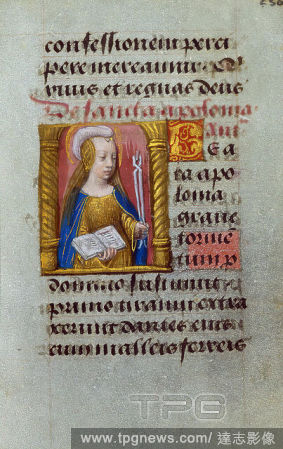 confessionem perci
pere mereamur
vivis et regnas deus
De sancta apolonia
anti
Bea
ta apo
lonia
grave
torme
tum p
domino sustinuit
primo tiranni extra
xerunt dentes eius
cum malleis ferreis
TPG
www.tpgnews.com/ 達志影像